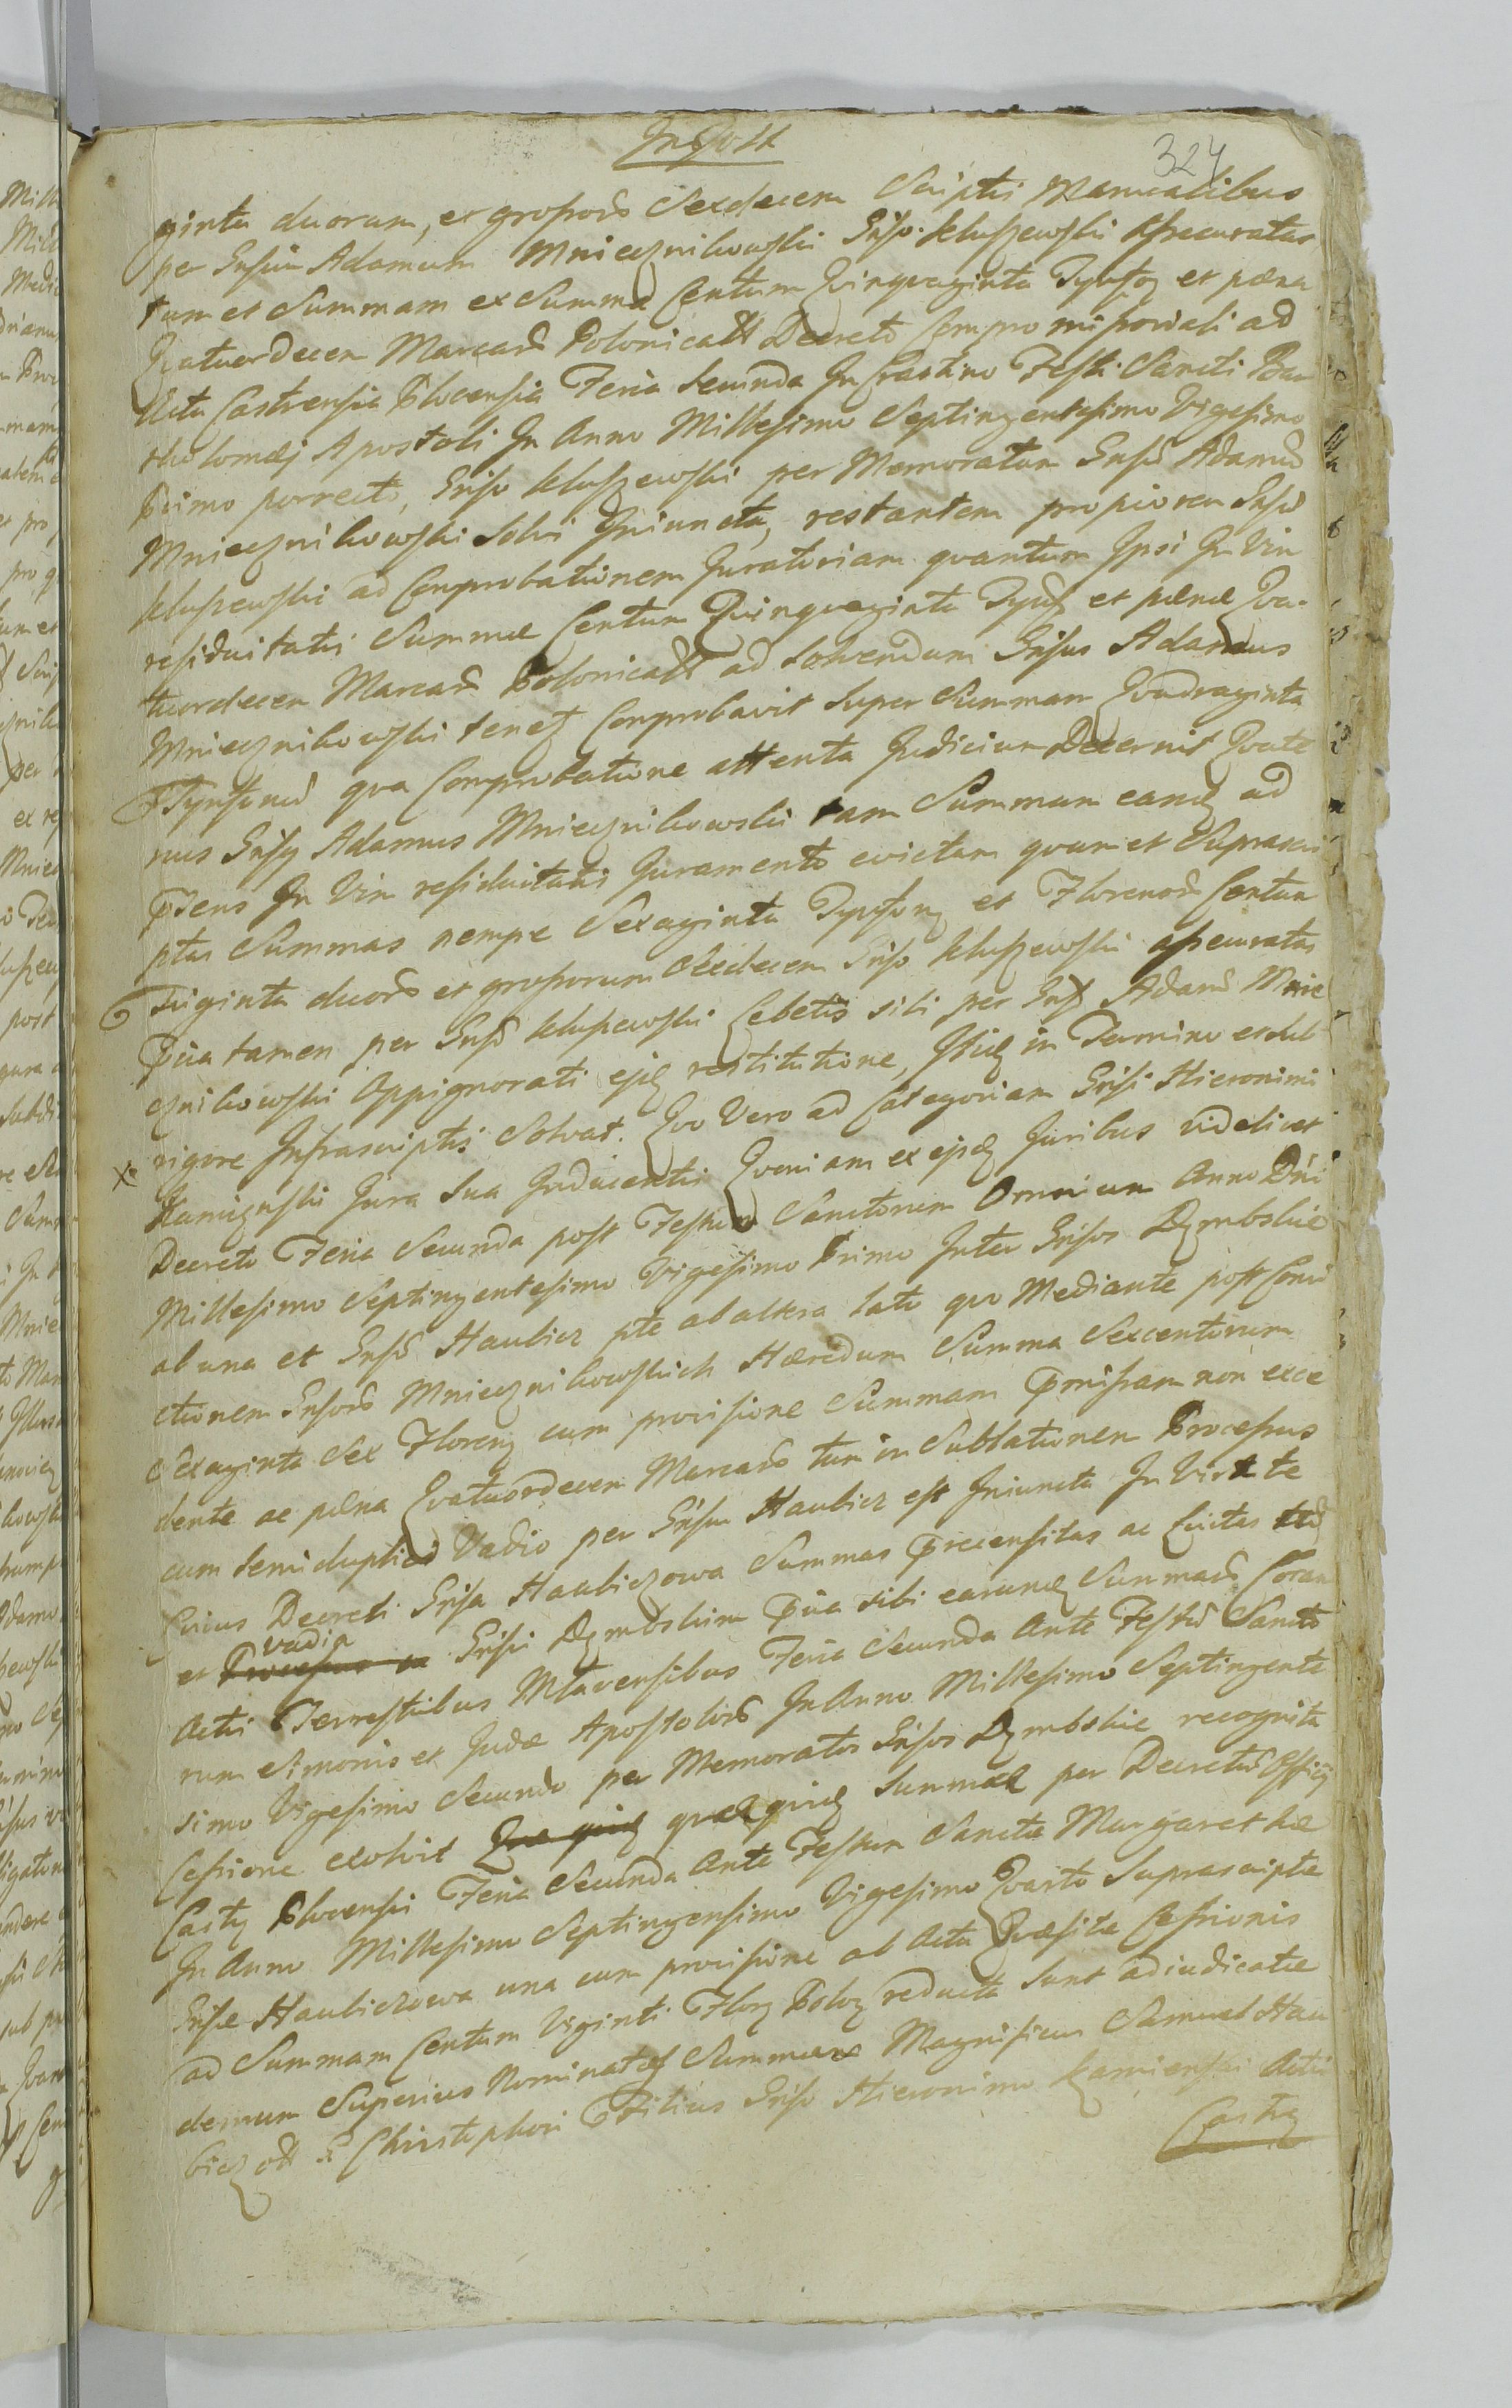 324
ginta duorum, et grossorũ Sexdecem Scriptis Manualibus
per Gnsum Adamum Mnieznikowski Gnso. Kluszewski assecuratas
tum et Summam ex Summa Centum Qvinqvaginta Tynfoꝝ et pæna
Qvatuordecem Marcarũ Polonicaℓℓ Decreto Compromissoriali ad
Acta Castrensia Plocensia Feria Secunda In Crastino Festi Sancti Bar
tholomæj Apostoli In Anno Millesimo Septingentesimo Vigesimo
Primo porrecto, Gnso Kluszewski per Memoratum Gnsũ Adamũ
Mnieznikowski Solvi Iniuncta, restantem propiorem Gnsũ
Kluszewski ad Comprobationem Juratoriam qvantum Ipsi In Vim
residuitatis Summæ Centum Qvinqvaginta Tynfoꝝ et pænæ Qva-
tuordecem Marcarũ Polonicaℓℓ ad Solvendum Gnsus Adamus
Mnieznikowski tenetꝫ Comprobavit Super Summam Qvadraginta
Tynfonũ qva Comprobatione attenta Judicium Decernit Qvate
nus Gnsꝫ Adamus Mnieznikowski tam Summam eandꝫ ad
pñens In Vim residuitatis Juramento evictam qvam et Suprascri
ptas Summas nempe Sexaginta Tynfonꝫ et Florenorũ Centum
Triginta duorũ et grossorum Sexdecem Gnso Kluszewski assecuratas
Pvia tamen per Gnsũ Kluszewski Lebetis sibi per Gnsũ Adamũ Mnie
znikowski Oppignorati ejdꝫ restitutione, Itidꝫ in Termino et sub
rigore Infrascriptis Solvat. Qvo Vero ad Categoriam Gnsi Hieronimi
Kamięnski Jura Sua Inducentis Qvoniam ex ejdꝫ Juribus videlicet
Decreto Feria Secunda post Festum Sanctorum Omnium Anno Dñi
Millesimo Septingentesimo Vigesimo Primo Inter Gnsos Dęmbskie
ab una et Gnsũ Haubicz pte ab altera lato qvo Mediante post Convi
ctionem Gnsorũ Mnieznikowskich Hæredum Summa Sexcentorum
Sexaginta Sex Florenꝫ cum provisione Summam Pmissam non exce
dente ac pæna Qvatuordecem Marcarũ tum in Sublationem Processus
cum Semiduplici Vadio per Gnsum Haubicz est Iniuncta In Virtute
Cuius Decreti Gnsa Haubiczowa Summas Precensitas ac Evictas
et vadia Gnsis Dęmbskim Pvia sibi earundꝫ Summarũ Coram
Actis Terrestribus Mlavensibus Feria Secunda Ante Festũ Sancto
rum Simonis et Judæ Apostolorũ In Anno Millesimo Septingente
simo Vigesimo Secundo per Memoratos Gnsos Dęmbskie recognita
Cessione exolvit qvæqvidꝫ Summæ per Decretũ Officij
Castꝫ Plocensis Feria Secunda Ante Festum Sanctæ Margarethæ
In Anno Millesimo Septingensimo Vigesimo Qvarto Suprascriptæ
Gnsæ Haubiczowa una cum provisione ab Acta Cessionis
ad Summam Centum Viginti Florꝫ Polonꝫ reducta Sunt adiudicatæ
demum Superius Nominatas Summas Magnificus Samuel Hau
bicz Christophori Filius Gnso Hieronimo Kamienski Actis
Castꝫ